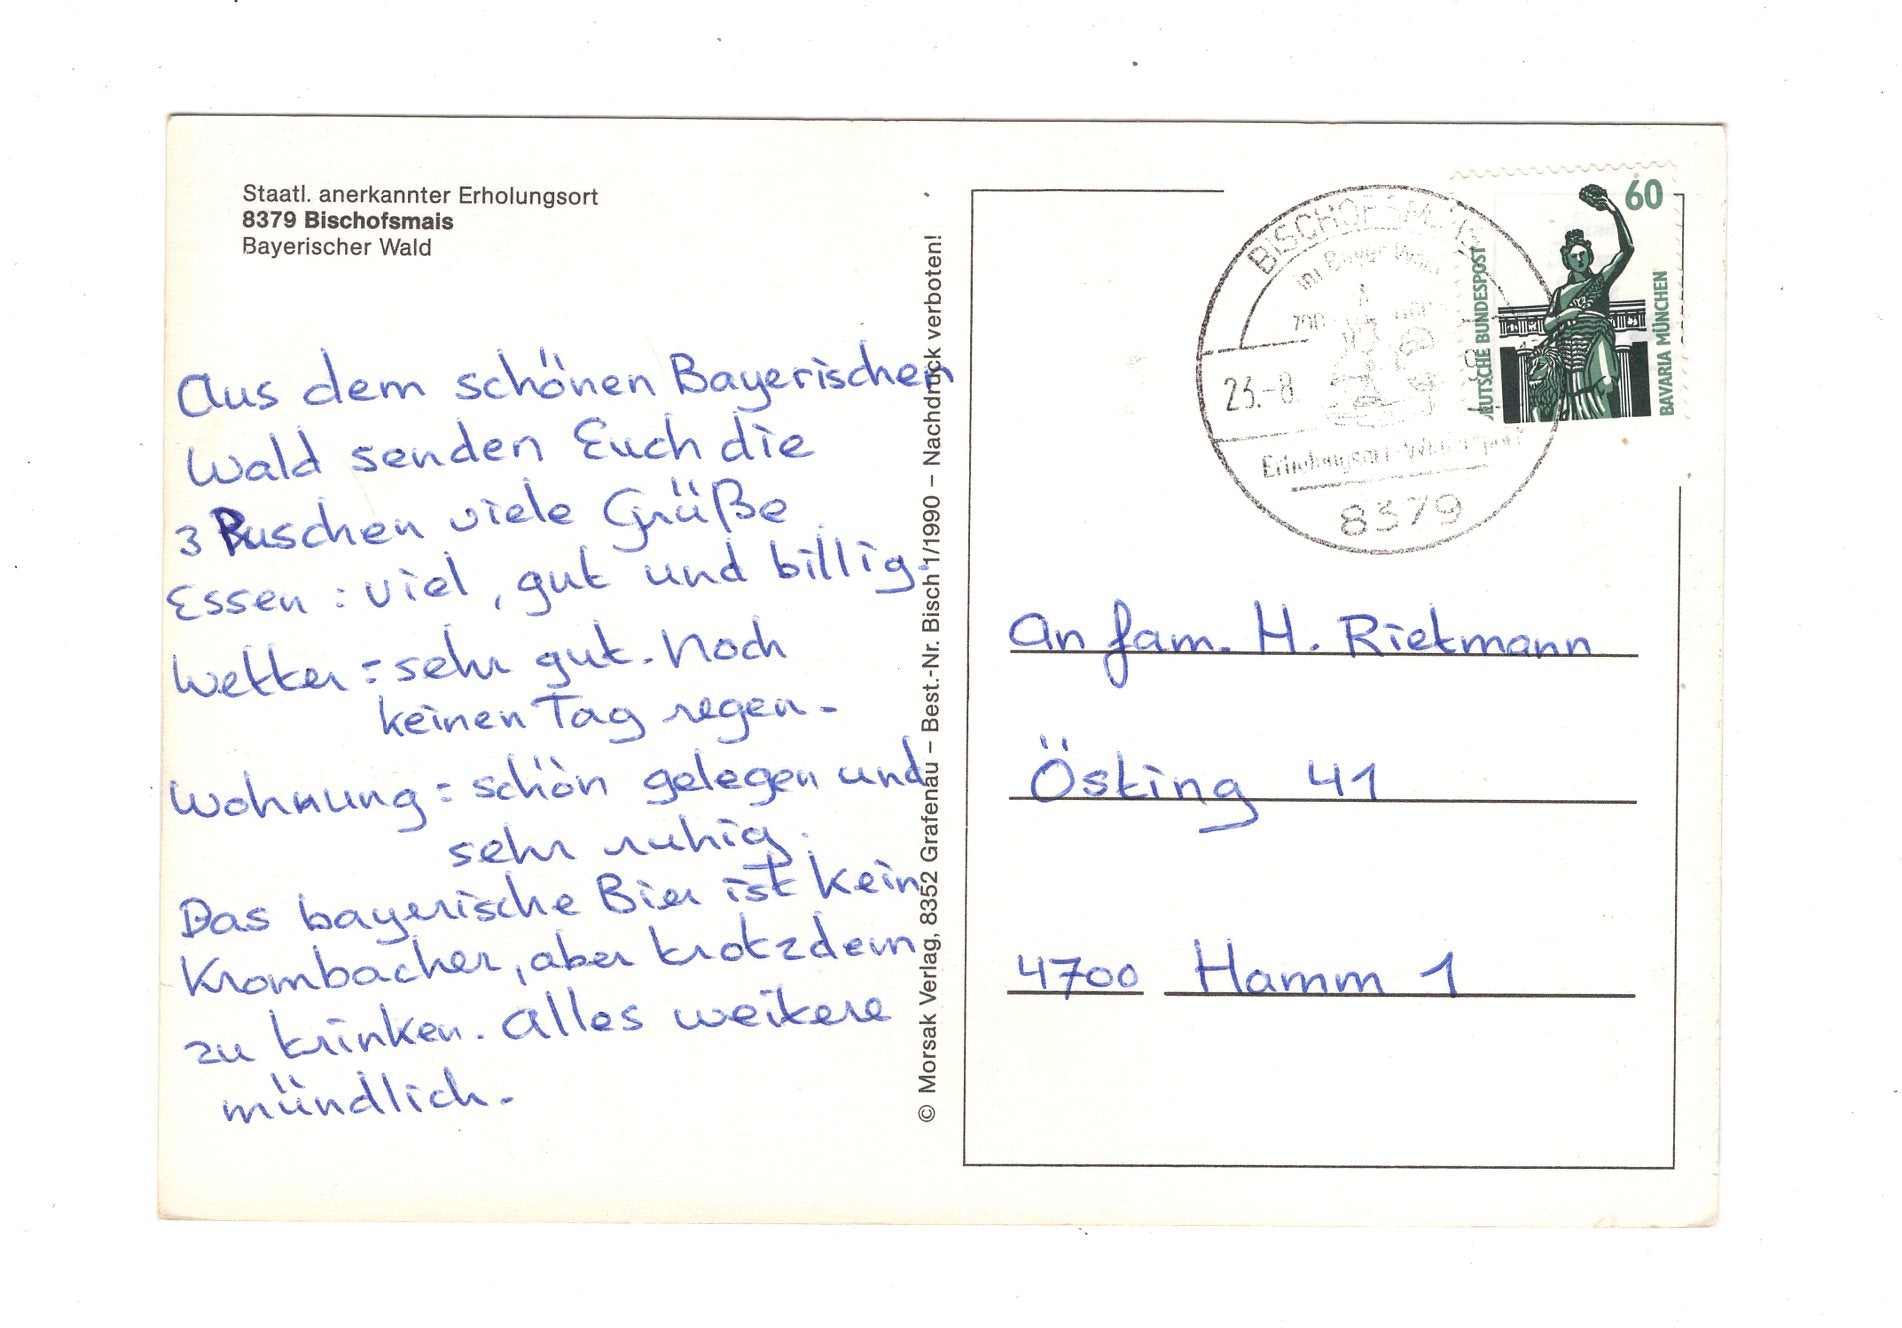 Staatl. anerkannter Erholungsort
8379 Bischofsmais
Bayerischer Wald
Aus dem schönen Bayerischen
Wald senden Euch die
3 Ruschen viele Grüße.
Essen: viel, gut und billig.
Wetter: sehr gut. Noch
keinen Tag regen.
Wohnung: schön gelegen und
sehr ruhig.
Das bayerische Bier ist kein
Krombacher, aber trotzdem
zu trinken. Alles weitere
mündlich.
© Morsak Verlag, 8352 Grafenau – Best.-Nr. Bisch 1/1990 – Nachdruck verboten!
BISCHOFSMAIS
im Bayer Wald
23.-8
Erholungsort-Wintersport
8379
60
DEUTSCHE BUNDESPOST
BAVARIA MÜNCHEN
An Fam. H. Rietmann
Östing 41
4700 Hamm 1